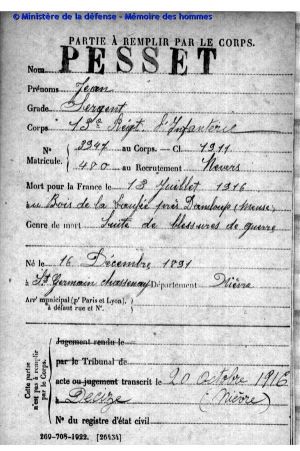 © Ministère de la défense - Mémoire des hommes
PARTIE À REMPLIR PAR LE CORPS.
PESSET
Nom
Prénoms Jean
Grade Sergent
Corps 13e Régt d'Infanterie
N° 3347 au Corps. — Cl 1911
Matricule. 480 au Recrutement Nevers
Mort pour la France le 13 Juillet 1916
au Bois de la Laufée près Damloup (Meuse)
Genre de mort Suite de blessures de guerre
Né le 16 Décembre 1891
à St Germain chassenay Département Nièvre
Arr' municipal (p' Paris et Lyon),
à défaut rue et N°.
Cette partie n'est pas à remplir par le Corps.
Jugement rendu le
par le Tribunal de
acte ou jugement transcrit le 20 octobre 1916
à Decize (Nièvre)
N° du registre d'état civil
269-708-1922. [26434]